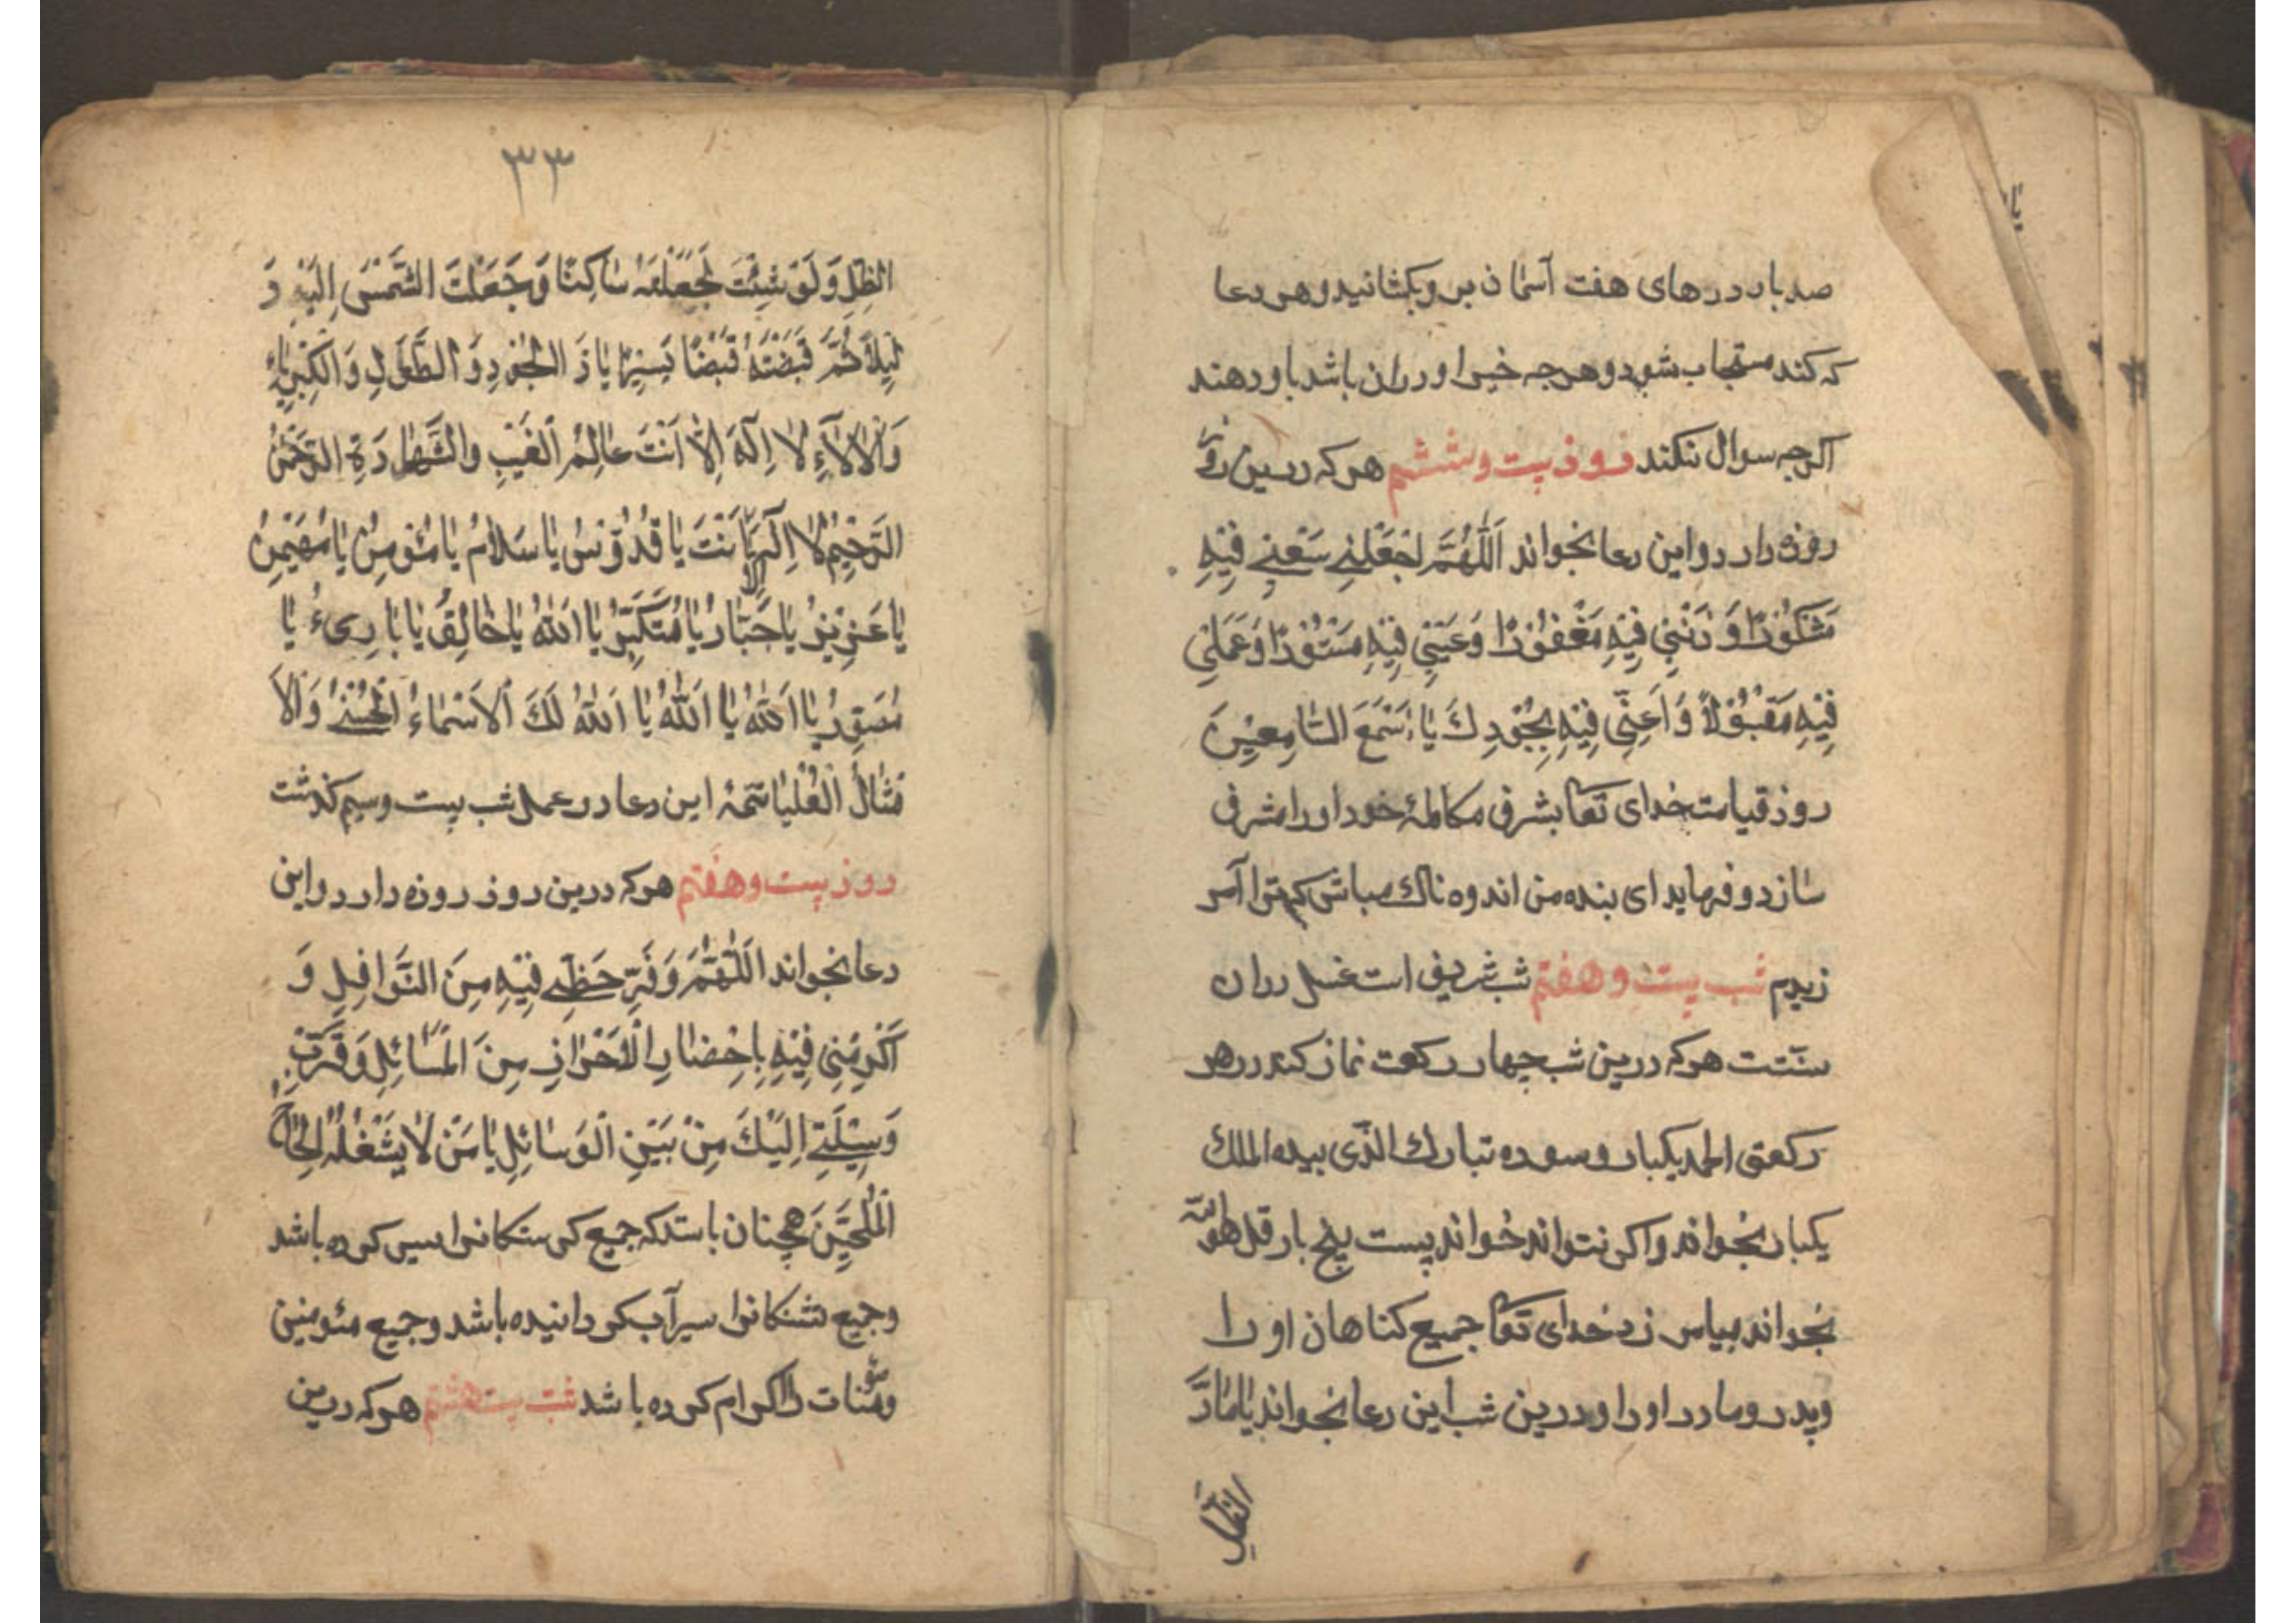 صد بار درهای هفت آسمان برو بکشانید و هر دعا
که کند مستجاب شود و هرچه خیر او دران باشد باو دهند
اگرچه سوال نکند روز بیست و ششم هر که درین روز
روزه دارد و این دعا بخواند اَللّٰهُمَّ اجْعَلْنِی سَعْیِی فِیْهِ
مَشْکُوْرًا وَ ذَنْبِی فِیْهِ مَغْفُوْرًا وَ عَیْبِی فِیْهِ مَسْتُوْرًا وَ عَمَلِی
فِیْهِ مَقْبُوْلًا وَ اَعِنِّی فِیْهِ بِجُوْدِكَ یَا اَسْمَعَ السَّامِعِیْنَ
روز قیامت خدای تعا بشرف مکالمهٔ خود او را مشرف
سازد و فرماید ای بنده من اندوه ناك مباش که ترا آمر
زیدم شب بیست و هفتم شب شریف است غسل دران
سنّتت هر که درین شب چهار رکعت نماز کند در هر
رکعتی الحمد یکبار و سوره تبارك الذّی بیده الملك
یکبار بخواند و اکر نتواند خواند بیست پنج بار قل هو الله
بخواند بیامرزد خدای تعا جمیع کناهان او را
و پدر و مادر او را و درین شب این دعا بخواند یَا مَادَّ
الظل
۳۳
الظِلِّ وَ لَوْ شِئْتَ لَجَعَلْتَهُ سَاکِنًا وَ جَعَلْتَ الشَّمْسَ اِلَیْهِ دَ
لِیلًا ثُمَّ قَبَضْتَهُ قَبْضًا یَسِیْرًا یَا ذَ الْجُوْدِ وَ الطَّوْلِ وَ الْکِبْرِیَاءِ
وَ الْاٰلَاءِ لَا اِلٰهَ اِلَّا اَنْتَ عَالِمُ الْغَیْبِ وَ الشَّهَادَةِ الرَّحْمٰنُ
الرَّحِیْمُ لَا اِلٰهَ اِلَّا اَنْتَ یَا قُدُّوْسُ یَا سَلَامُ یَا مُؤْمِنُ یَا مُهَیْمِنُ
یَا عَزِیْزُ یَا جَبَّارُ یَا مُتَکَبِّرُ یَا اَللّٰهُ یَا خَالِقُ یَا بَارِیءُ یَا
مُصَوِّرُ یَا اَللّٰهُ یَا اَللّٰهُ یَا اَللّٰهُ لَكَ الْاَسْمَاءُ الْحُسْنٰی وَ الْاَ
مْثَالُ الْعُلْیَا تتمهٔ این دعا در عمل شب بیست و سیم کذشت
روز بیست و هفتم هر که درین روز روزه دارد و این
دعا بخواند اَللّٰهُمَّ وَفِّرْ حَظِّی فِیْهِ مِنَ النَّوَافِلِ وَ
اَکْرِمْنِی فِیْهِ بِاِحْضَارِ الْاَحْرَازِ مِنَ الْمَسَائِلِ وَ قَرِّبْ
وَسِیْلَتِی اِلَیْكَ مِنْ بَیْنِ الْوَسَائِلِ یَا مَنْ لَا یَشْغَلُهُ اِلْحَاحُ
الْمُلِحِّیْنَ همچنان باشد که جمیع کرسنکانرا سیر کرده باشد
و جمیع تشنکانرا سیرآب کردانیده باشد و جمیع مئومنین
و مئومنات را اکرام کرده باشد شب بیست هشتم هر که درین